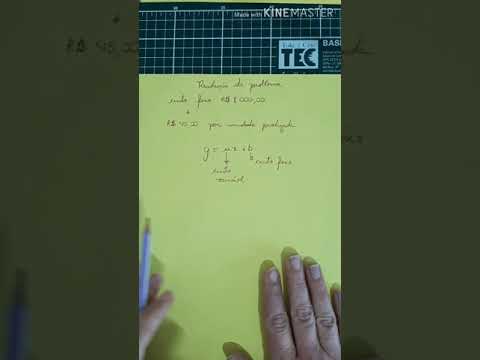 Made with KINEMASTER
TEC
BASE
Resolução do problema
custo fixo R$ 8 000,00
+
R$ 45,00 por unidade produzida
y = ax + b
custo fixo
custo
variável